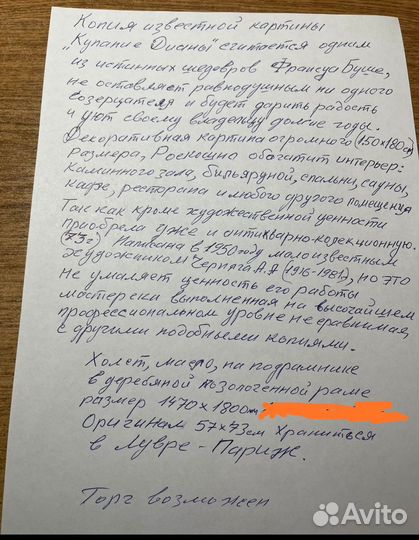 Копия известной картины
"Купание Дианы" считается одним
из истинных шедевров Франсуа Буше,
не оставляет равнодушным ни одного
созерцателя и будет дарить радость
и уют своему владельцу долгие годы.
Декоративная картина огромного (150х180см)
размера, Роскошно обогатит интерьер:
Каминного зала, бильярдной, спальни, сауны,
кафе, ресторана и любого другого помещения
Так как кроме художественной ценности
приобрела уже и антикварно-колекционную.
(73г) Написана в 1950 году малоизвестным
художником Черняга А.Я (1916-1981), но это
Не умаляет ценность его работы
мастерски выполненная на высочайшем
профессиональном уровне не сравнимая,
с другими подобными копиями.
Холст, масло, на подрамнике
в деревяной позолоченной раме
размер 1470х1800мм
Оригинал 57х73см Храниться
в Лувре - Париж.
Торг возможен
Avito